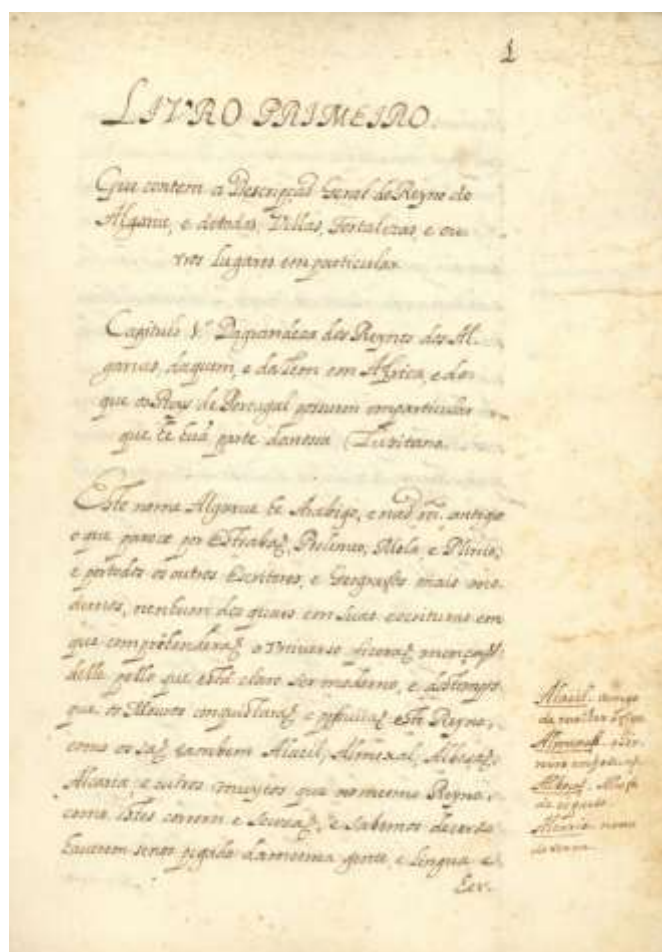 1
LIVRO PRIMEIRO.
Que contem a Descripçaõ Geral do Reyno do
Algarue, e de todas, Villas, Fortalezas, e ou-
tros lugares em particular.
Capitulo 1.º Da grandeza dos Reynos dos Al-
garues, daquem, e dalem em Africa, e do
que os Reys de Portugal possuem em particular
que he huã parte da nossa Luzitania.
Este nome Algarue he Arabigo, e naõ antigo
o que parece por Estrabaõ, Ptolmeo, Mela e Plinio,
e por todos os outros Escritores, e Geografos mais mo-
dernos, nenhum dos quais em suas escrituras em
que comprehenderaõ o Vniverso fizeraõ mençaõ
delle pello que está claro ser moderno, e do tempo
que os Mouros conquistaraõ e este Reyno,
como os saõ tambem Alacil, Almexal,
Alcaria, e outros muytos que no mesmo Reyno,
como estes correm e se vzaõ, e sabemos de certo
hauerem senos pegado da mesma gente, e lingua e
Alacil
Alcaria nome